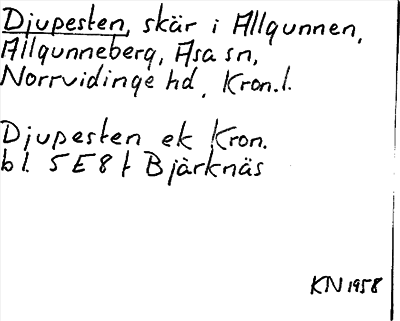 Djupesten, skär i Allgunnen,
Allgunneberg, Asa sn,
Norrvidinge hd, Kron.l.
Djupesten ek Kron.
bl. 5E8t Bjärknäs
KN 1958